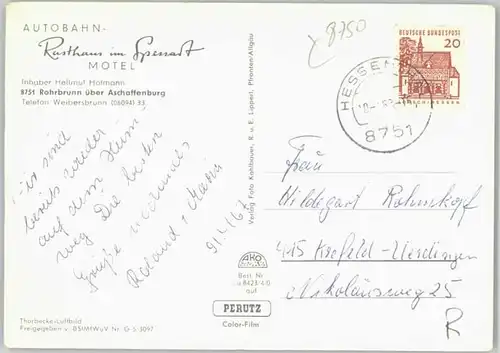 AUTOBAHN-
Rasthaus im Spessart
MOTEL
Inhaber Hellmut Hofmann
8751 Rohrbrunn über Aschaffenburg
Telefon Weibersbrunn (06094) 33
8750
DEUTSCHE BUNDESPOST
20
HESSEN
8751
Wir sind
bereits wieder
auf dem Heim
weg Die besten
Grüße nochmals
Roland + Maria
9/4/67
Verlag Foto Kohlbauer, K. u. E. Lippert, Pfronten/Allgäu
Frau
Hildegart Rohmkopf
415 Krefeld-Uerdingen
Nikolausweg 25
R
AKO
Best. Nr.
8423/4/0
auf
PERUTZ
Color-Film
Thorbecke-Luftbild
Freigegeben v. BStMWuV Nr. G 5/3097